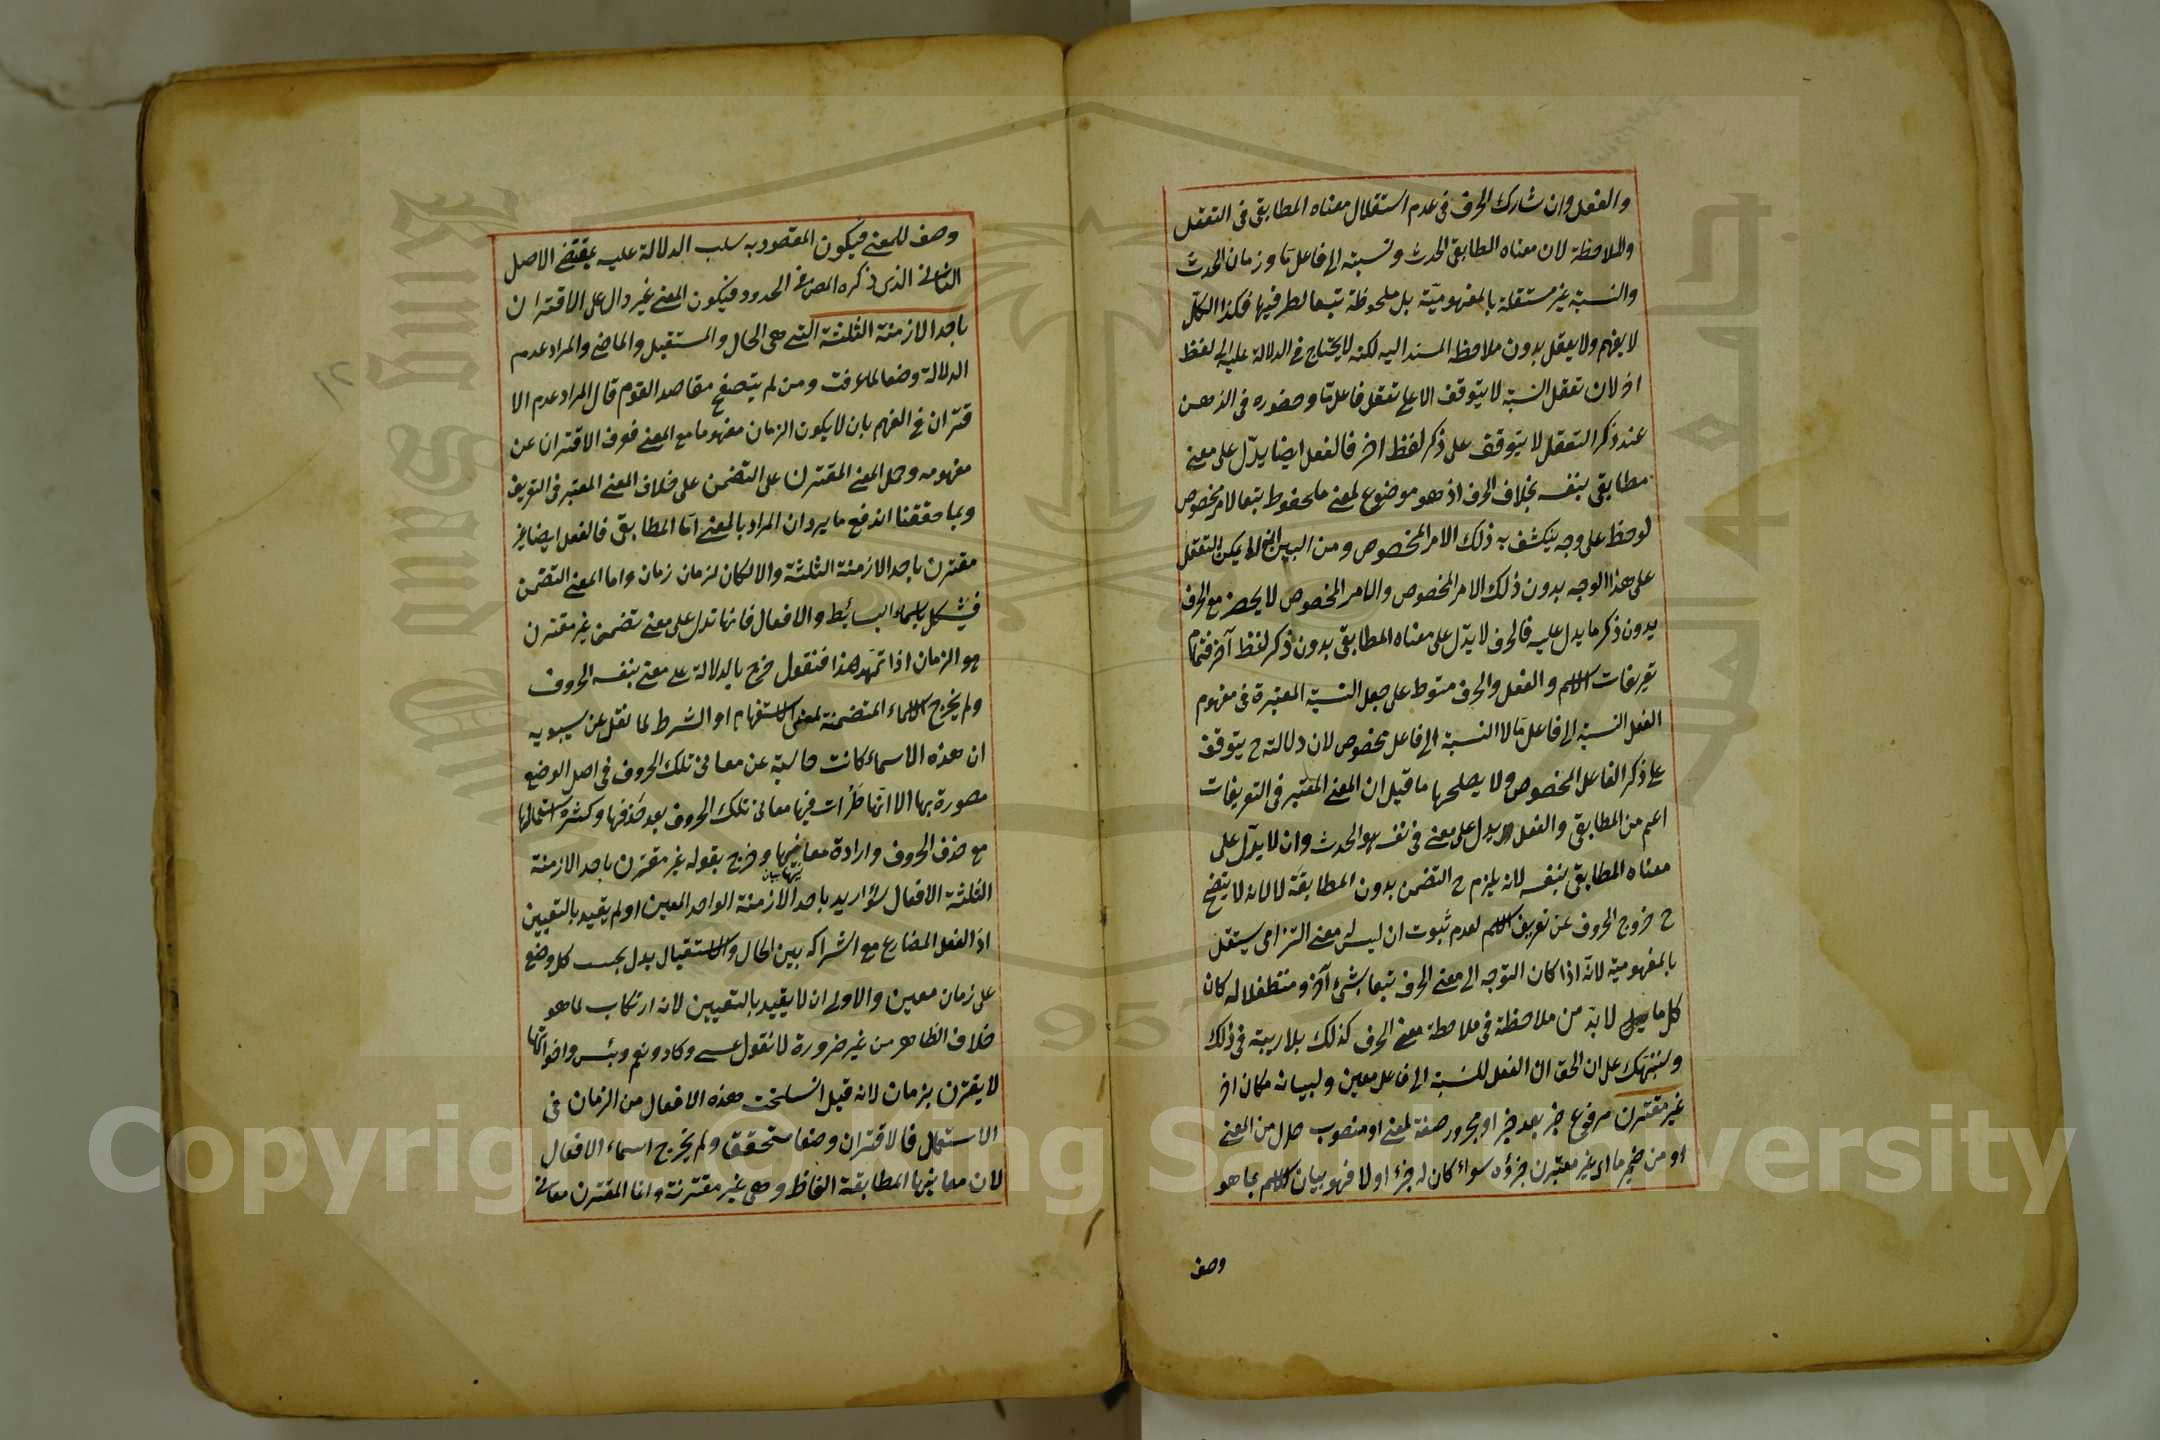 والفعل وان شارك الحرف فى عدم استقلال معناه المطابقى فى التعقل
والملاحظة لان معناه المطابقى الحدث ونسبته الى فاعل ما وزمان الحدث
والنسبة غير مستقلة بالمفهومية بل ملحوظة تبعا لطرفيها فكذا الكل
لا يفهم ولا يعقل بدون ملاحظة المسند اليه لكنه لا يحتاج فى الدلالة عليه الى لفظ
اخر لان تعقل النسبة لا يتوقف الا على تعقل فاعل ما وحضوره فى الذهن
عند ذكر التعقل لا يتوقف على ذكر لفظ اخر فالفعل ايضا يدل على معنى
مطابقى بنفسه بخلاف الحرف اذ هو موضوع لمعنى ملحوظ تبعا لامر مخصوص
لوحظ على وجه ينكشف به ذلك الامر المخصوص ومن البين انه لا يمكن التعقل
على هذا الوجه بدون ذلك الامر المخصوص والامر المخصوص لا يحضر مع الحرف
بدون ذكر ما يدل عليه فالحرف لا يدل على معناه المطابقى بدون ذكر لفظ آخر فتمام
تعريفات الاسم والفعل والحرف منوط على جعل النسبة المعتبرة فى مفهوم
الفعل النسبة الى فاعل ما لا النسبة الى فاعل مخصوص لان دلالته ح يتوقف
على ذكر الفاعل المخصوص ولا يصلحها ما قيل ان المعنى المعتبر فى التعريفات
اعم من المطابقى والفعل يدل على معنى فى نفسه هو الحدث وان لا يدل على
معناه المطابقى بنفسه لانه يلزم ح التضمن بدون المطابقة لا لانه لا يتضح
ح خروج الحروف عن تعريف الاسم لعدم ثبوت ان ليس له معنى التزامى يستقل
بالمفهومية لانه اذا كان التوجه الى معنى الحرف تبعا بشىء آخر ومتطفلا له كان
كل ما لا بد من ملاحظته فى ملاحظة معنى الحرف كذلك بلا ريبة فى ذلك
وسننبهك على ان الحق ان الفعل للنسبة الى فاعل معين ولبيانه مكان اخر
غير مقترن مرفوع خبر بعد خبر او مجرور صفة لمعنى او منصوب حال من المعنى
او من ضمير ما اى غير مقترن جزؤه سواء كان له جزء او لا فهو بيان الاسم بما هو
وصف
وصف للمعنى فيكون المقصود به سلب الدلالة عليه بمقتضى الاصل
الثانى الذى ذكره المص فى الحدود فيكون المعنى غير دال على الاقتران
باحد الازمنة الثلثة التى هى الحال والمستقبل والماضى والمراد عدم
الدلالة وضعا لما عرفت ومن لم يتصفح مقاصد القوم قال المراد عدم الا
قتران فى الفهم بان لا يكون الزمان مفهوما مع المعنى فوف الاقتران عن
مفهومه وحمل المعنى المقترن على التضمن على خلاف المعنى المعتبر فى التعريف
وبما حققنا اندفع ما يرد ان المراد بالمعنى اما المطابقى فالفعل ايضا غير
مقترن باحد الازمنة الثلثة والا لكان لزمان زمان واما المعنى التضمن
فيشكل باسماء البسائط والافعال فانها تدل على معنى تضمنى غير مقترن
هو الزمان اذا تمهد هذا فنقول خرج بالدلالة على معنى بنفسه الحروف
ولم يخرج الاسماء المتضمنة لمعنى الاستفهام او الشرط لما نقل عن سيبويه
ان هذه الاسماء كانت خالية عن معانى تلك الحروف فى اصل الوضع
مصورة بها الا انها طرأت فيها معانى تلك الحروف بعد حذفها وكثرة استعمالها
مع حذف الحروف وارادة معانيها وخرج بقوله غير مقترن باحد الازمنة
الثلثة الافعال سواء اريد باحد الازمنة الواحد المعين او لم يقيد بالتعيين
اذ الفعل المضارع مع اشتراكه بين الحال والاستقبال يدل بحسب كل وضع
على زمان معين والاولى ان لا يقيد بالتعيين لانه ارتكاب لما هو
خلاف الظاهر من غير ضرورة لا نقول عسى وكاد ونعم وبئس واخواتها
لا يقترن بزمان لانه قيل انسلخت هذه الافعال من الزمان فى
الاستعمال فالاقتران وضعا متحقق ولم يخرج اسماء الافعال
لان معانيها المطابقة الفاظ وهى غير مقترنة وانما المقترن معانى
١٢
Copyright © King Saud University
King Saud University
1957